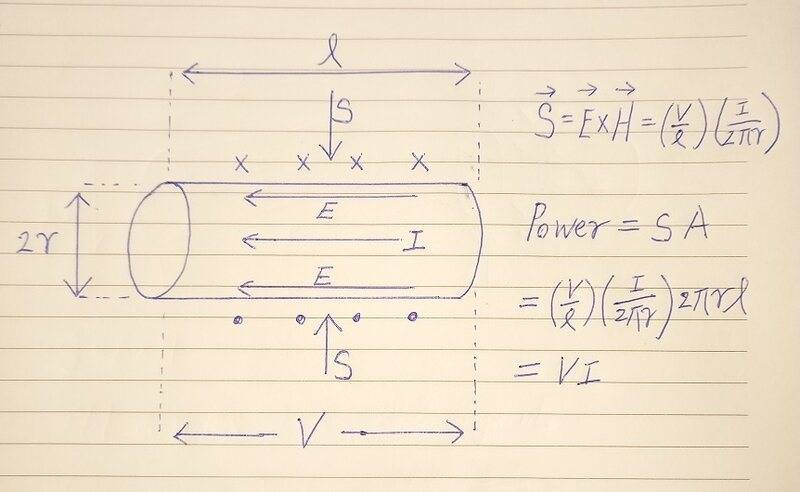 l
S
x x x x
E
2r
I
E
S
V
S⃗ = E⃗ × H⃗ = (V/l) (I/2πr)
Power = S A
= (V/l) (I/2πr) 2πrl
= VI